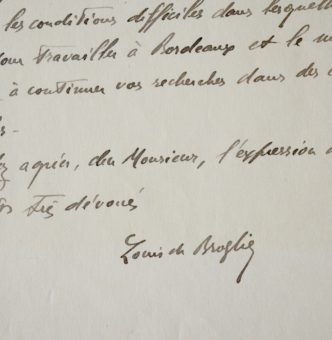 les conditions difficiles dans lesquell
pour travailler à Bordeaux et le
à continuer vos recherches dans des
agréer, cher Monsieur, l'expression
très dévoués
Louis de Broglie